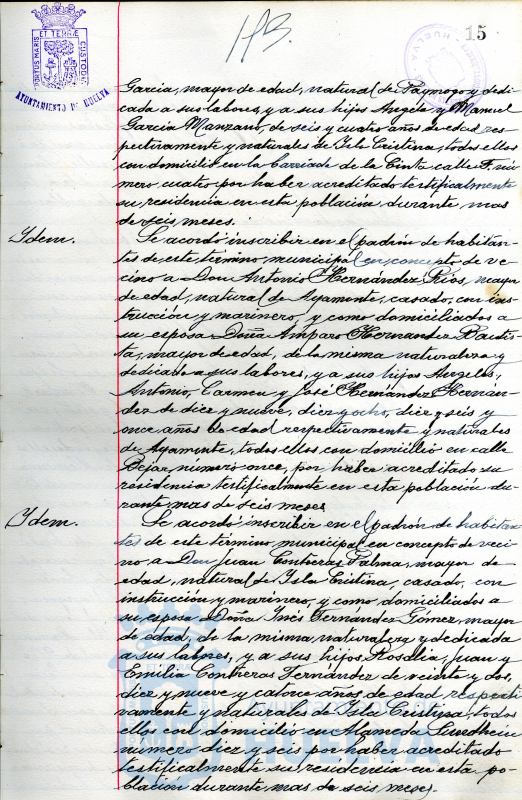 PORTUS MARIS ET TERRÆ CUSTODIA
AYUNTAMIENTO DE HUELVA
113.
15
García, mayor de edad, natural de Paymogo y dedi-
cada a sus labores, y a sus hijos Angela y Manuel
García Manzano, de seis y cuatro años de edad res-
pectivamente y naturales de Isla Cristina, todos ellos
con domicilio en la barriada de la Cinta calle F. nú-
mero cuatro por haber acreditado testificalmente
su residencia en esta población durante mas
de seis meses.
Idem.
Se acordó inscribir en el padrón de habitan-
tes de este término municipal en concepto de ve-
cino a Don Antonio Hernández Ríos, mayor
de edad, natural de Ayamonte, casado, con ins-
trucción y marinero, y como domiciliados a
su esposa Doña Amparo Hernández Bautis-
ta, mayor de edad, de la misma naturaleza y
dedicada a sus labores, y a sus hijos Angeles,
Antonio, Carmen y José Hernández Hernán-
dez de diez y nueve, diez y ocho, diez y seis y
once años de edad respectivamente y naturales
de Ayamonte, todos ellos con domicilio en calle
Bejar, número once, por haber acreditado su
residencia testificalmente en esta población du-
rante mas de seis meses
Idem.
Se acordó inscribir en el padrón de habitan-
tes de este término municipal en concepto de veci-
no, a Don Juan Contreras Palma, mayor de
edad, natural de Isla Cristina, casado, con
instrucción y marinero, y como domiciliados a
su esposa Doña Inés Fernández Gómez, mayor
de edad, de la misma naturaleza y dedicada
a sus labores, y a sus hijos Rosalia, Juan y
Emilia Contreras Fernández de veinte y dos,
diez y nueve y catorce años de edad respecti-
vamente y naturales de Isla Cristina, todos
ellos con domicilio en Alameda Sundheim
número diez y seis por haber acreditado
testificalmente su residencia en esta po-
blación durante mas de seis meses.
HUELVA